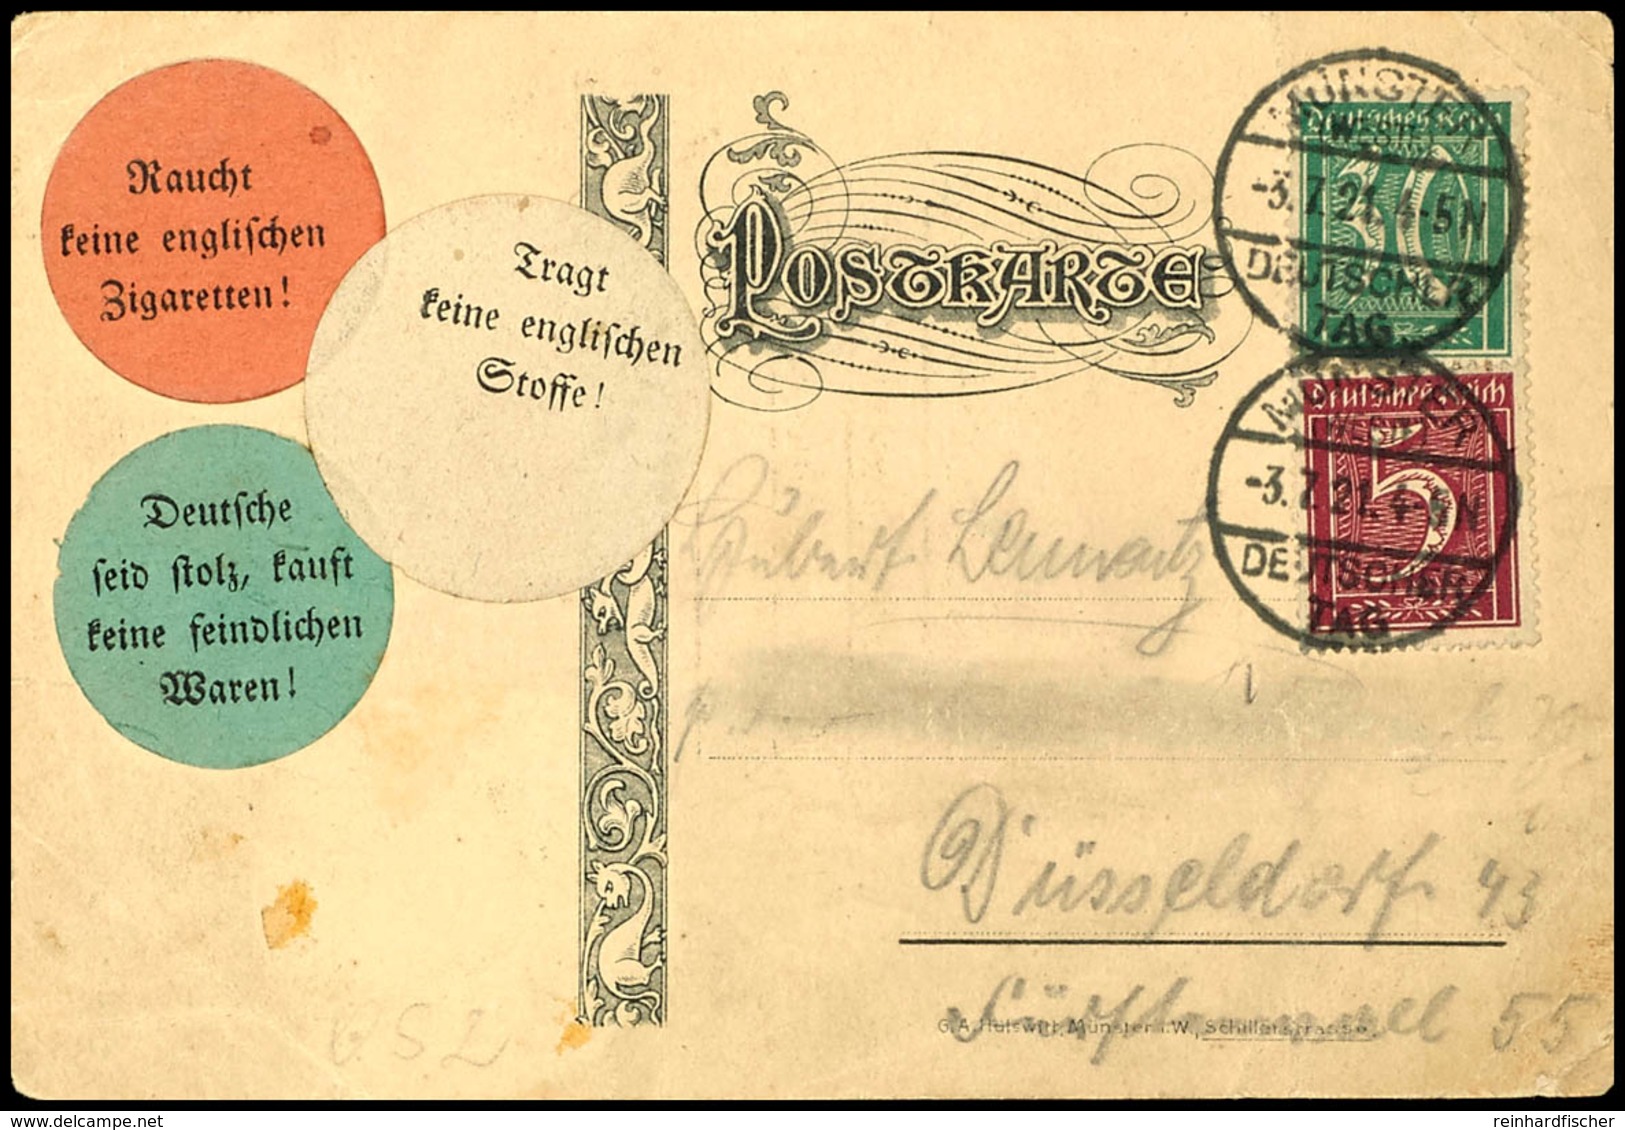 Raucht
keine engliſchen
Zigaretten!
Tragt
keine engliſchen
Stoffe!
Deutſche
ſeid ſtolz, kauft
keine feindlichen
Waren!
POSTKARTE
MÜNSTER
WESTF.
-3.7.21. 4-5N
DEUTSCHER
TAG
Deutsches Reich
30
MÜNSTER
WESTF.
-3.7.21. 4-5N
DEUTSCHER
TAG
Deutsches Reich
5
Hubert
Düsseldorf 43
55
G. A. Hülswitt, Münster i. W., Schillerstrasse.
6 S 2
reinhardfischer